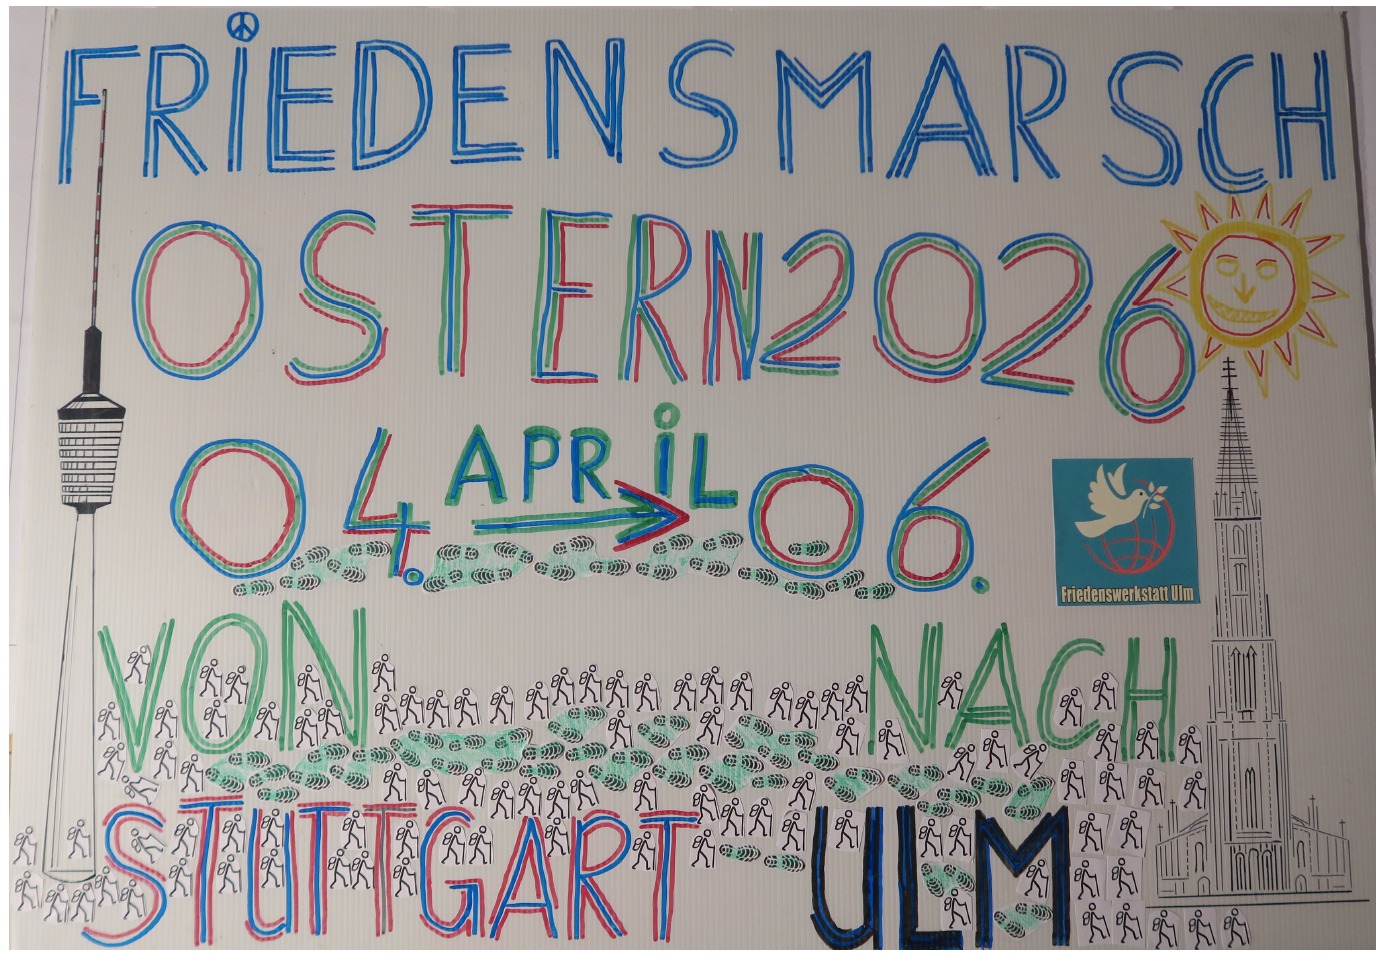 FRiEDENSMARSCH
OSTERN 2026
04. APRiL 06.
Friedenswerkstatt Ulm
VON NACH
STUTTGART ULM